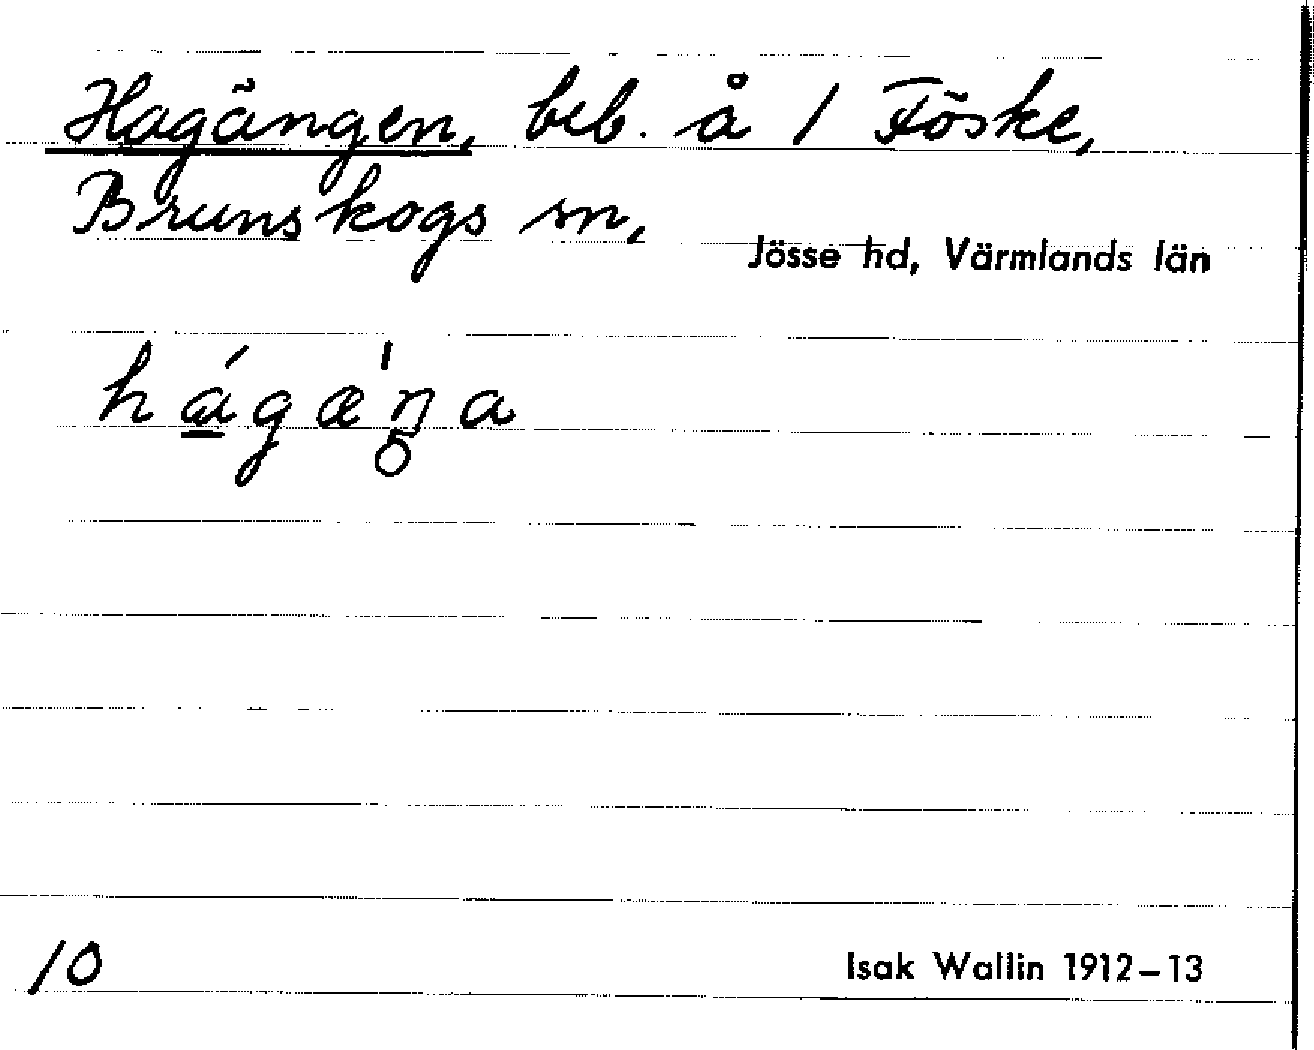 Hagängen, beb. å 1 Föske,
Brunskogs sn,
Jösse hd, Värmlands län
hágæ'ŋa
10
Isak Wallin 1912–13